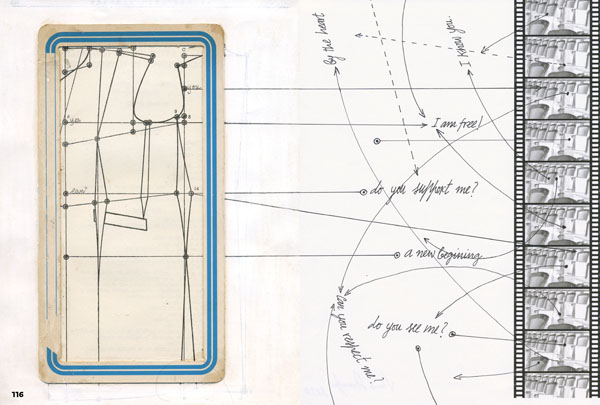 by the heart
I know you
I am free!
do you support me?
a new begining
can you respect me?
do you see me?
116